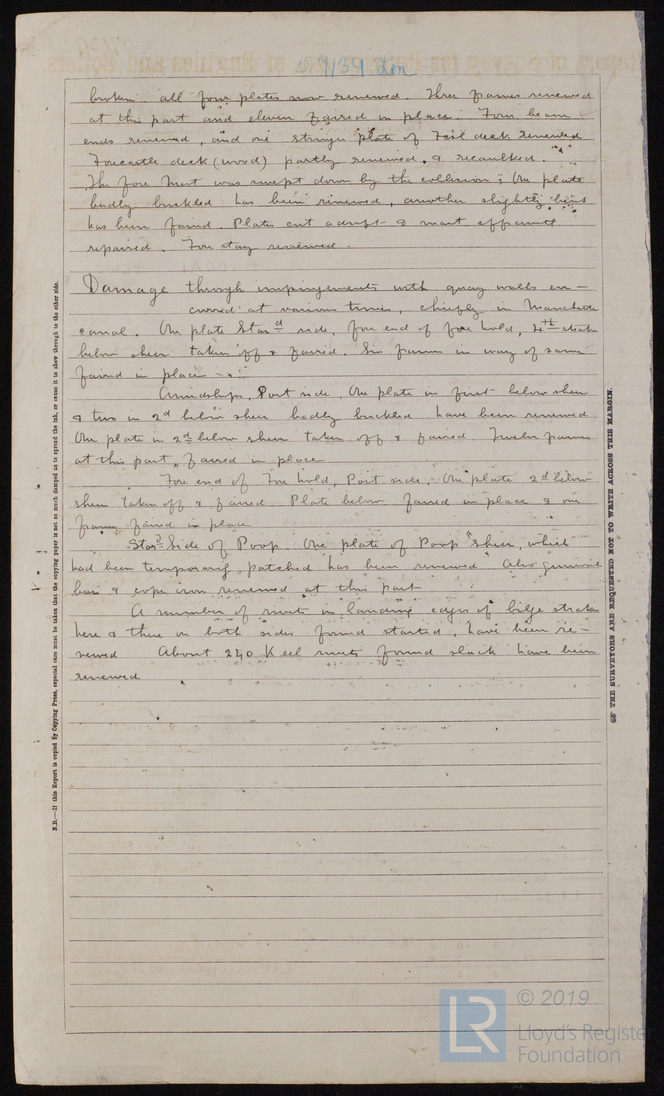 9139 Lon
broken. all four plates now renewed. Three frames renewed
at this part and eleven faired in place. Four beam
ends renewed, and one stringer plate of Fcsl deck renewed
Forecastle deck (wood) partly renewed, & recaulked.
The fore Mast was swept down by the collision; One plate
badly buckled has been renewed, another slightly bent
has been faired. Plates cut adrift & mast efficiently
repaired. Fore stay renewed.
Damage through impingements with quay walls in-
curred at various times, chiefly in Manchester
canal. One plate Stard side, fore end of fore hold, 4th strake
below sheer taken off & faired. Six frames in way of same
faired in place
Amidships, Port side. One plate in first below sheer
& two in 2d below sheer badly buckled have been renewed
One plate in 2d below sheer taken off & faired. Twelve frames
at this part, faired in place
Fore end of Fore hold, Port side; One plate 2d below
sheer taken off & faired Plate below faired in place & one
frame faired in place
Stard Side of Poop. One plate of Poop sheer, which
had been temporarily patched has been renewed. Also
bar & cope iron renewed at this part
A number of rivets in landing edges of bilge strakes
here & there on both sides found started, have been re-
newed About 240 Keel rivets found slack have been
renewed
N.B.—If this Report is copied by Copying Press, especial care must be taken that the copying paper is not so much damped as to spread the ink, or cause it to show through to the other side.
OF THE SURVEYORS ARE REQUESTED NOT TO WRITE ACROSS THIS MARGIN.
LR
© 2019
Lloyd's Register
Foundation